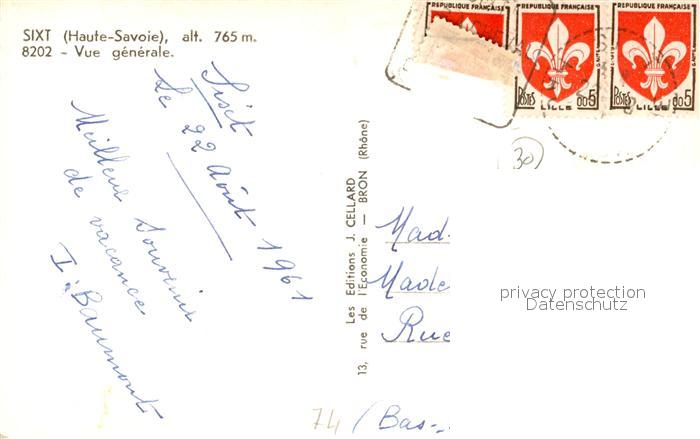 SIXT (Haute-Savoie), alt. 765 m.
8202 - Vue générale.
REPUBLIQUE FRANÇAISE
REPUBLIQUE FRANÇAISE
REPUBLIQUE FRANÇAISE
POSTES LILLE 0.05
POSTES LILLE 0.05
30
Sixt
Le 22 Août 1961
Meilleur Souvenir
de vacance
I. Baumont
Les Editions J. CELLARD
13, rue de l'Economie — BRON (Rhône)
Mad.
Made
Rue
privacy protection
Datenschutz
74 (Bas-